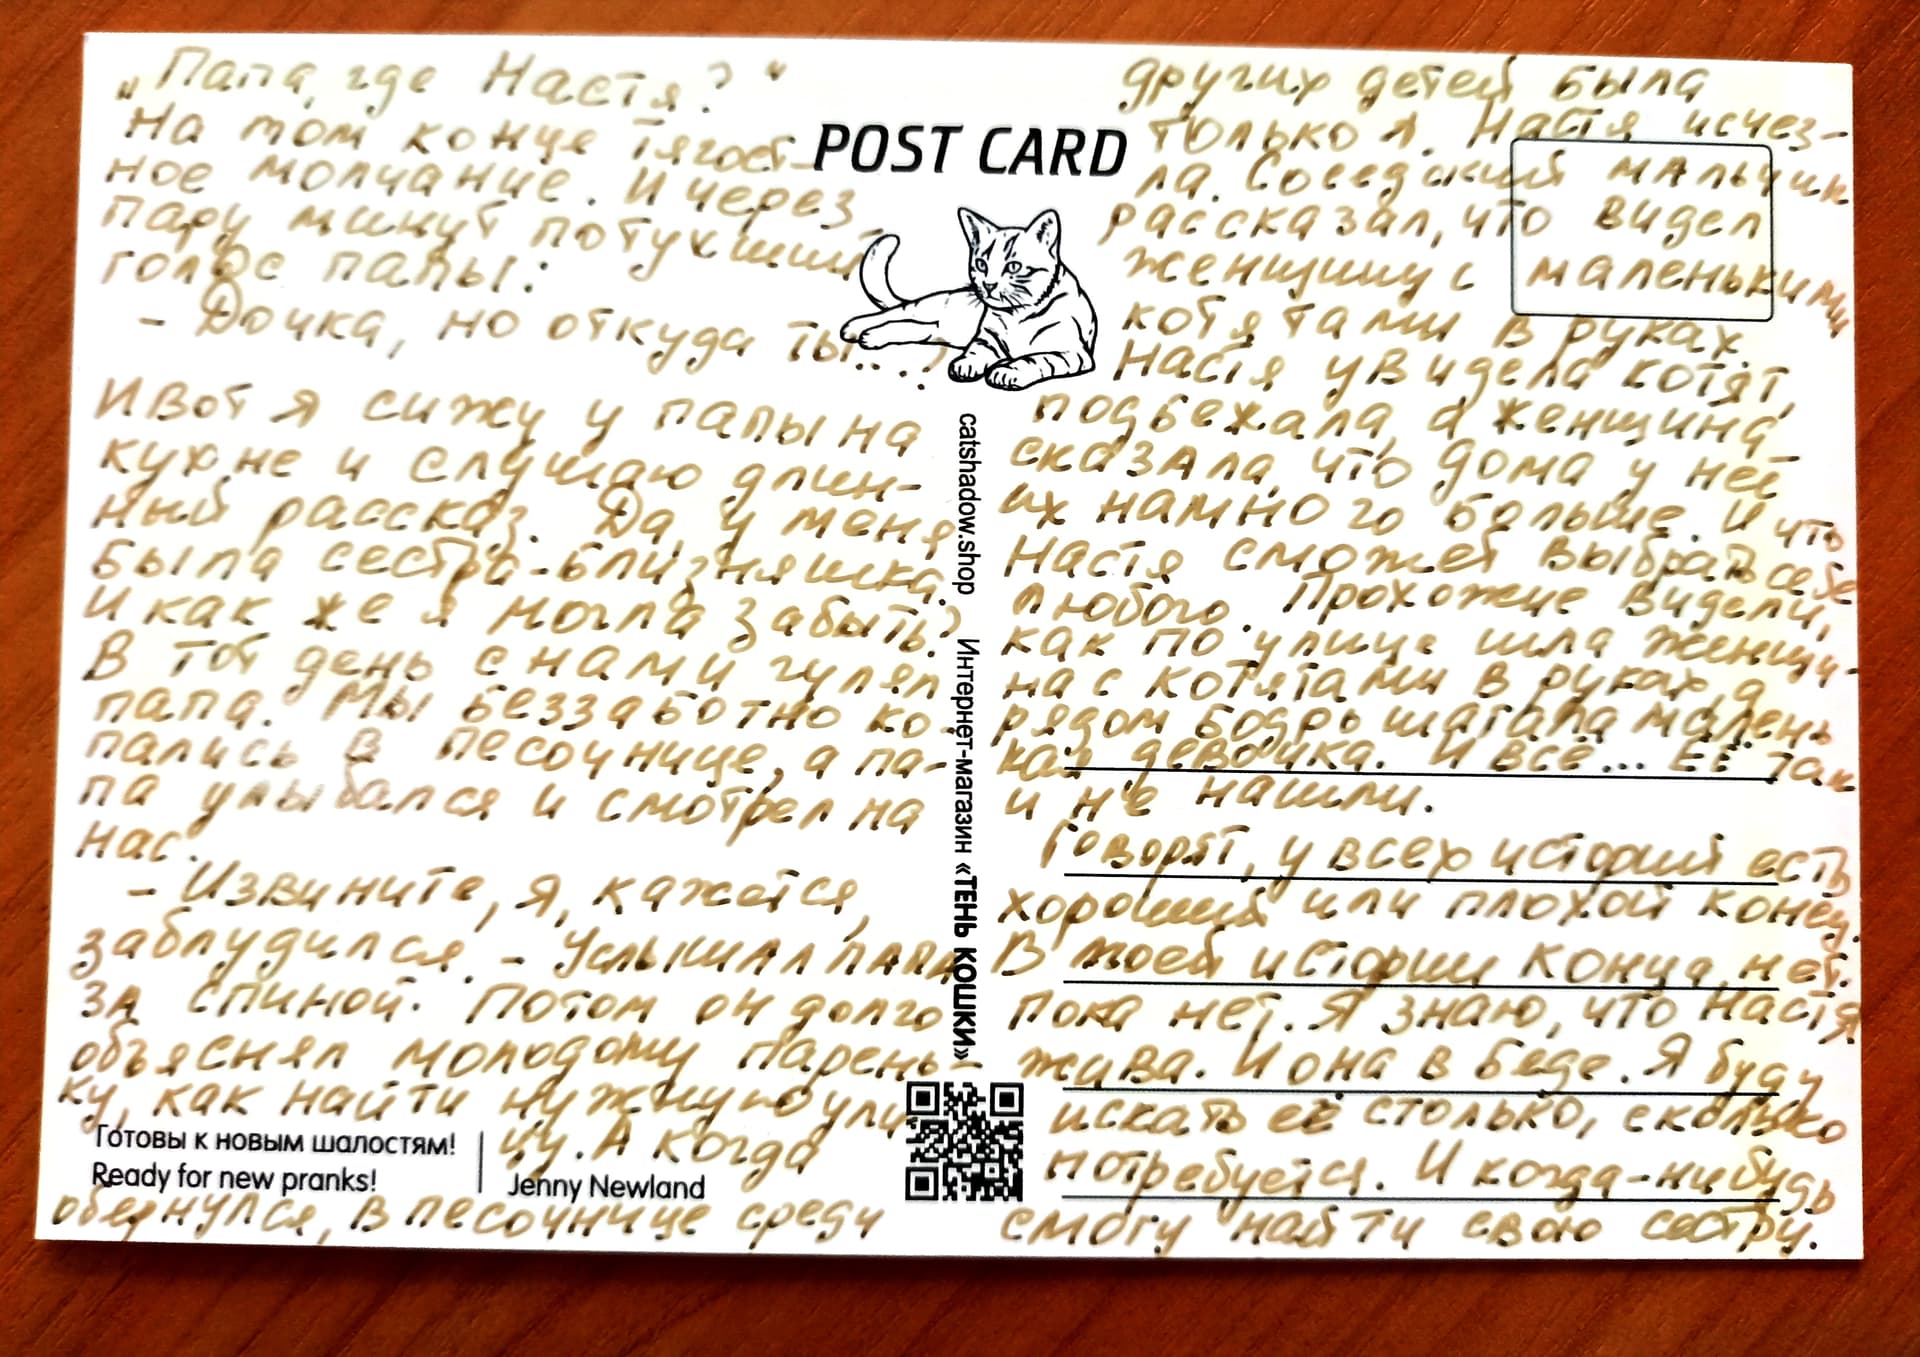 „Папа, где Настя?“
На том конце тягост-
ное молчание. И через
пару минут потухший
голос папы:
- Дочка, но откуда ты...?
И вот я сижу у папы на
кухне и слушаю длин-
ный рассказ. Да, у меня
была сестра-близняшка.
И как же я могла забыть?
В тот день с нами гулял
папа. Мы беззаботно ко-
пались в песочнице, а па-
па улыбался и смотрел на
нас.
- Извините, я, кажется,
заблудился. - Услышал папа
за спиной. Потом он долго
объяснял молодому парень-
ку, как найти нужную ули-
цу. А когда
обернулся, в песочнице среди
Готовы к новым шалостям!
Ready for new pranks!
Jenny Newland
POST CARD
catshadow.shop Интернет-магазин «ТЕНЬ КОШКИ»
других детей была
только я. Настя исчез-
ла. Соседский мальчик
рассказал, что видел
женщину с маленькими
котятами в руках.
Настя увидела котят,
подбежала, а женщина
сказала, что дома у неё
их намного больше. И что
Настя сможет выбрать себе
любого. Прохожие видели,
как по улице шла женщи-
на с котятами в руках, а
рядом бодро шагала малень
кая девочка. И всё... Её так
и не нашли.
Говорят, у всех историй есть
хороший или плохой конец.
В моей истории конца нет.
Пока нет. Я знаю, что Настя
жива. И она в беде. Я буду
искать её столько, сколько
потребуется. И когда-нибудь
смогу найти свою сестру.